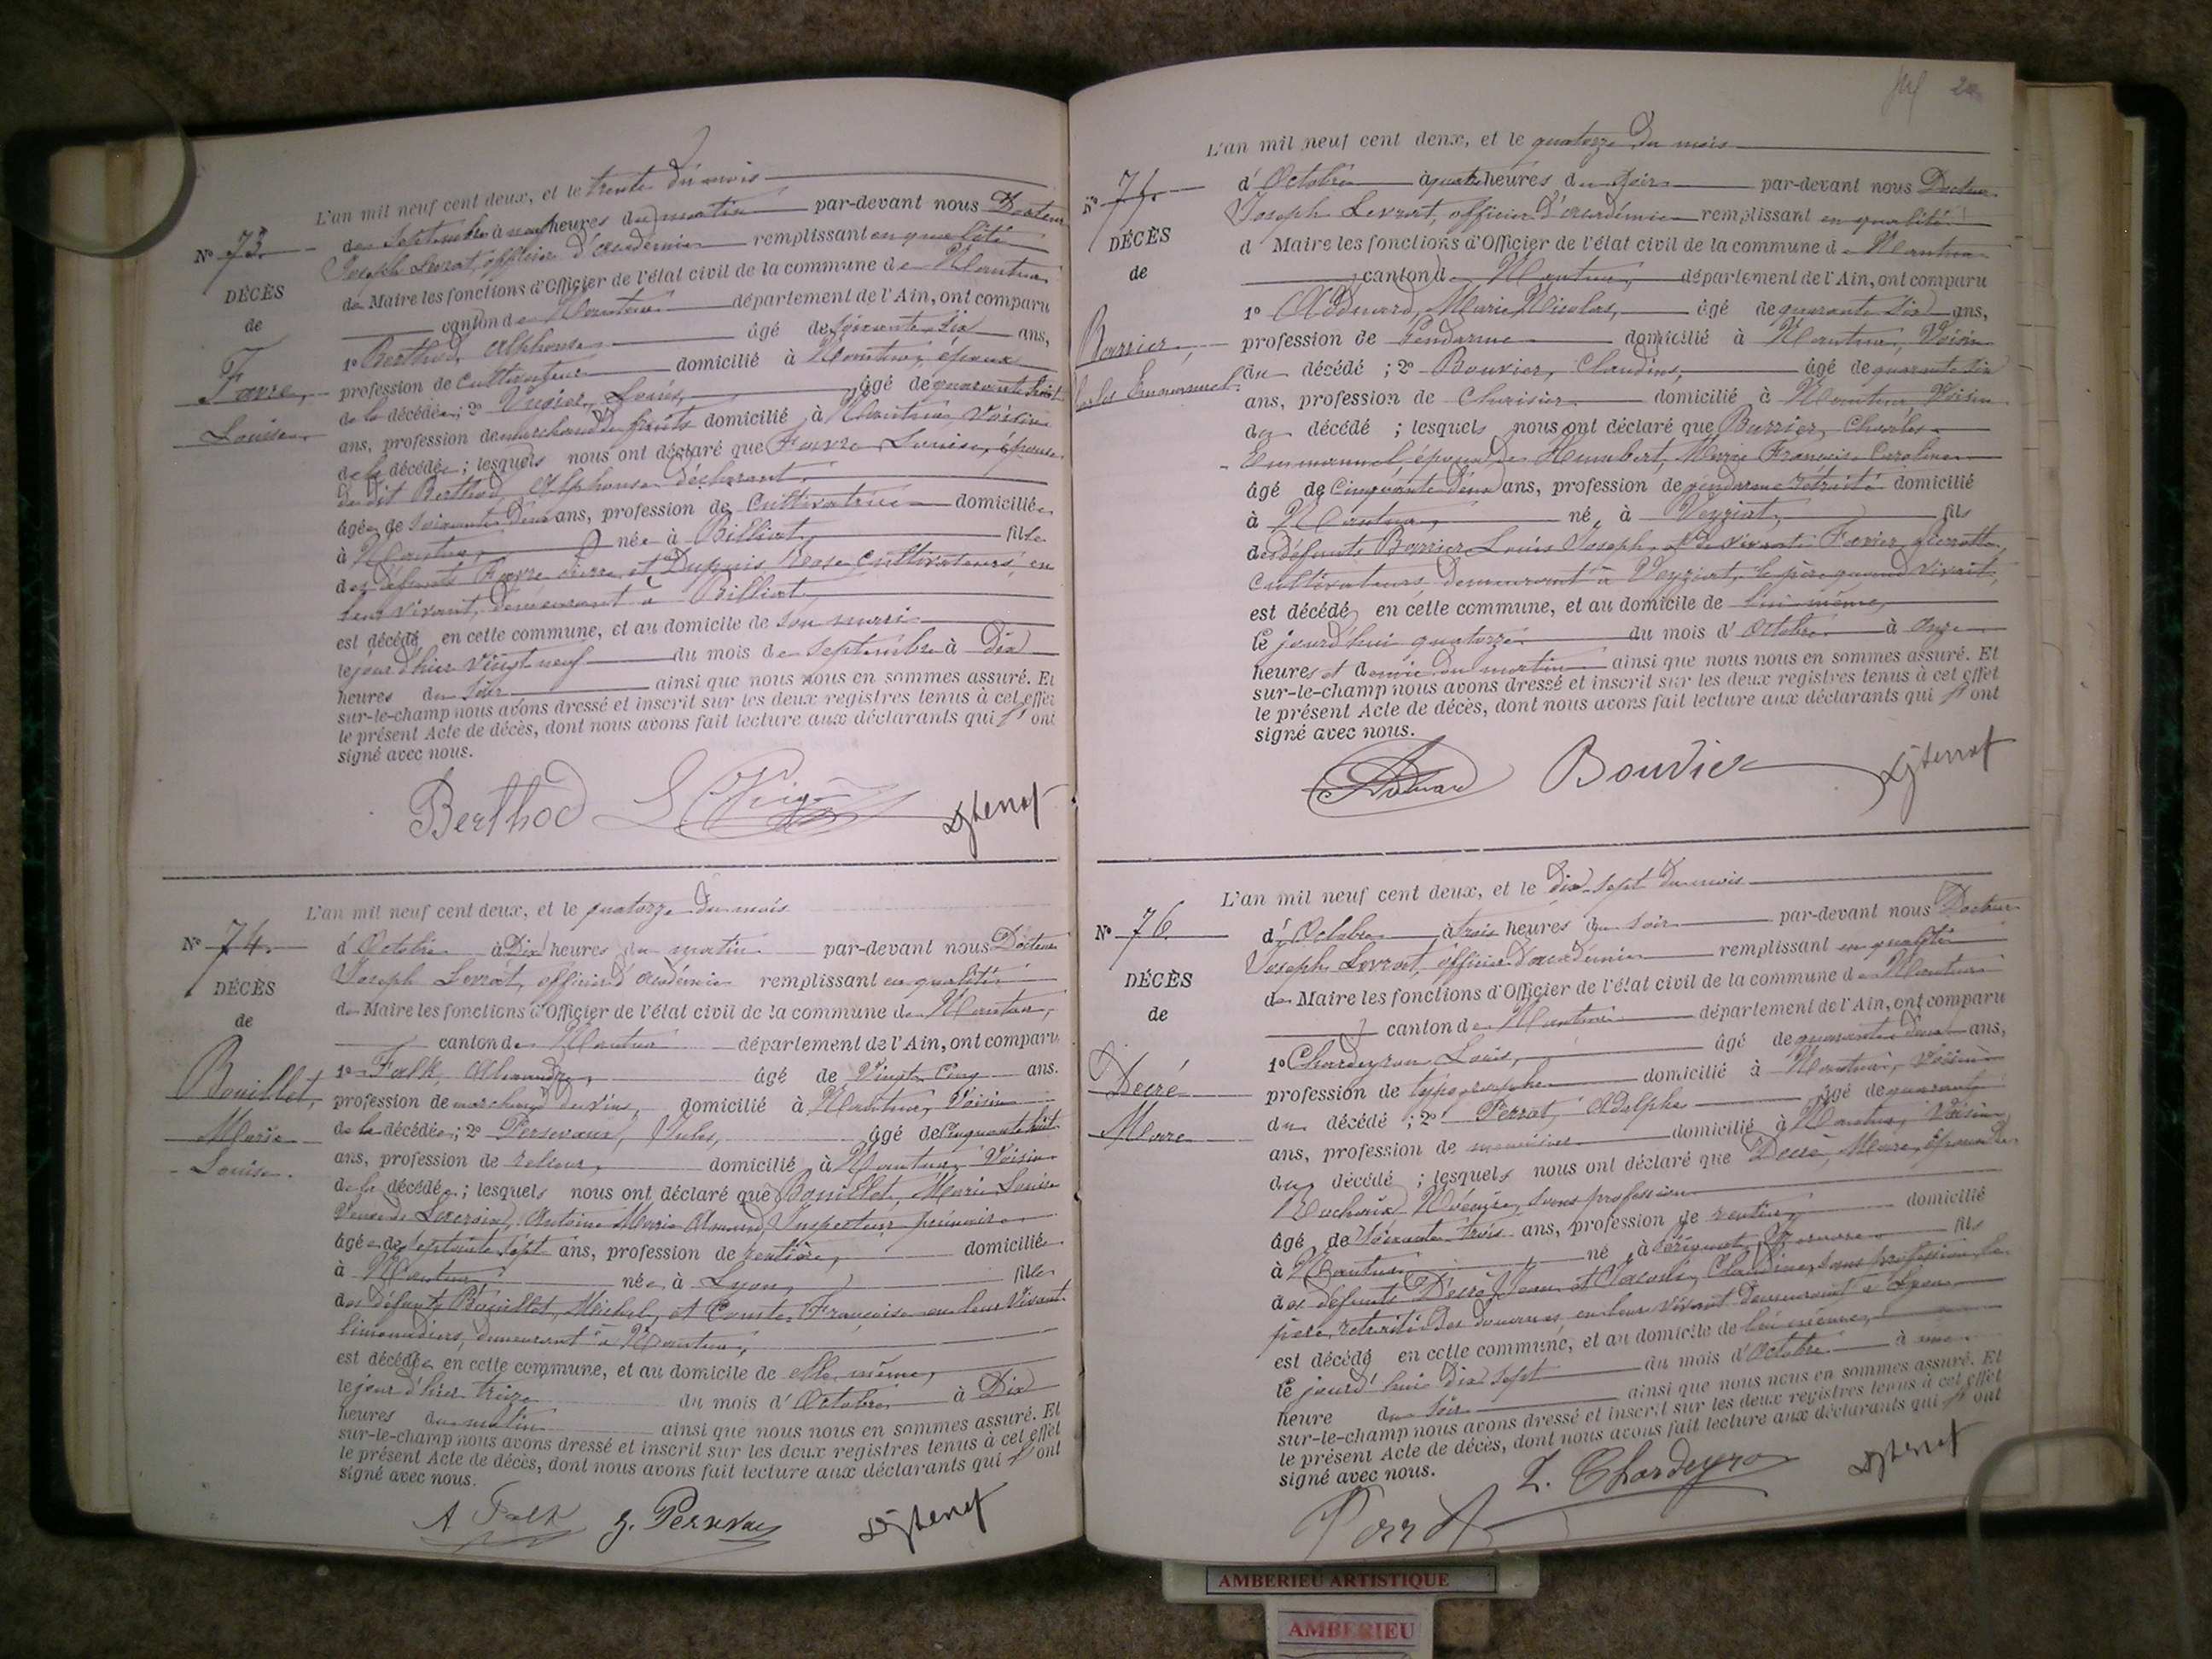 L'an mil neuf cent deux, et le trente du mois
de Septembre à neuf heures du matin par-devant nous Docteur
Joseph Levrat, officier d'académie remplissant en qualité
de Maire les fonctions d'Officier de l'état civil de la commune de Nantua
canton de Nantua département de l'Ain, ont comparu
1º Berthod, Alphonse âgé de soixante six ans,
profession de cultivateur domicilié à Nantua, époux
de la décédée; 2º Louis, âgé de quarante huit
ans, profession de marchand de fruits domicilié à Nantua, Voisin
de la décédée; lesquels nous ont déclaré que Favre, Louise, épouse
du dit Berthod, Alphonse déclarant,
âgée de soixante deux ans, profession de cultivatrice domiciliée
à Nantua, née à Billiat, fille
des défunts Favre Pierre et Dupuis cultivateurs, en
leur vivant, demeurant à Billiat,
est décédée en cette commune, et au domicile de son mari
le jour d'hier vingt neuf du mois de septembre à Dix
heures du soir ainsi que nous nous en sommes assuré. Et
sur-le-champ nous avons dressé et inscrit sur les deux registres tenus à cet effet
le présent Acte de décès, dont nous avons fait lecture aux déclarants qui l'ont
signé avec nous.
Nº 73.
DÉCÈS
de
Favre,
Louise
Berthod
L'an mil neuf cent deux, et le quatorze du mois
d'Octobre à Dix heures du matin par-devant nous Docteur
Joseph Levrat, officier d'académie remplissant en qualité
de Maire les fonctions d'Officier de l'état civil de la commune de Nantua,
canton de Nantua département de l'Ain, ont comparu
1º Falk, Alexandre, âgé de Vingt Cinq ans.
profession de marchand de vins, domicilié à Nantua, Voisin
de la décédée; 2º Persevaux, Jules, âgé de Cinquante huit
ans, profession de relieur, domicilié à Nantua, Voisin
de la décédée; lesquels nous ont déclaré que Bouillet, Marie Louise
Veuve de Antoine Marie Inspecteur primaire
âgée de septante sept ans, profession de rentière, domiciliée
à Nantua, née à Lyon, fille
des défunts Bouillet, Michel, et Comte, Françoise en leur Vivant
limonadiers, demeurant à Nantua,
est décédée en cette commune, et au domicile de elle même,
le jour d'hier treize du mois d'Octobre à Dix
heures du matin ainsi que nous nous en sommes assuré. Et
sur-le-champ nous avons dressé et inscrit sur les deux registres tenus à cet effet
le présent Acte de décès, dont nous avons fait lecture aux déclarants qui l'ont
signé avec nous.
Nº 74.
DÉCÈS
de
Bouillet,
Marie
Louise.
A. Falk
L'an mil neuf cent deux, et le quatorze du mois
d'Octobre à quatre heures du soir par-devant nous Docteur
Joseph Levrat, officier d'académie remplissant en qualité
d Maire les fonctions d'Officier de l'état civil de la commune de Nantua
canton de Nantua, département de l'Ain, ont comparu
1º Marie Nicolas, âgé de quarante six ans,
profession de Gendarme domicilié à Nantua, Voisin
du décédé; 2º Bouvier, Claudius, âgé de quarante six
ans, profession de domicilié à Nantua Voisin
du décédé; lesquels nous ont déclaré que Burrier, Charles
Emmanuel, époux de Humbert, Marie Françoise Caroline
âgé de cinquante deux ans, profession de gendarme retraité domicilié
à Nantua, né à Veyziat, fils
Louis Joseph, Favier,
cultivateurs demeurant à Veyziat, le père quand vivait,
est décédé en cette commune, et au domicile de lui-même,
le jourd'hui quatorze du mois d'Octobre à onze
heures et demie du matin ainsi que nous nous en sommes assuré. Et
sur-le-champ nous avons dressé et inscrit sur les deux registres tenus à cet effet
le présent Acte de décès, dont nous avons fait lecture aux déclarants qui l'ont
signé avec nous.
DÉCÈS
de
Burrier,
Bouvier
L'an mil neuf cent deux, et le dix-sept du mois
Nº 76.
d'Octobre à trois heures du soir par-devant nous Docteur
Joseph Levrat, officier d'académie remplissant en qualité
de Maire les fonctions d'Officier de l'état civil de la commune de Nantua
canton de Nantua département de l'Ain, ont comparu
1º Chardeyron Louis, âgé de quarante deux ans,
profession de typographe domicilié à Nantua, voisin
du décédé; 2º Perrat, Adolphe âgé de quarante
ans, profession de menuisier domicilié à Nantua, Voisin
du décédé; lesquels nous ont déclaré que Decré, Marc, époux de
sans profession
âgé de soixante trois ans, profession de rentier, domicilié
à Nantua né à fils
des défunts Decré, Jean et Claudine, sans profession, le
père, retraité des douanes, en leur vivant demeurant à Lyon,
est décédé en cette commune, et au domicile de lui même,
le jourd'hui dix sept du mois d'Octobre à une
heure du soir ainsi que nous nous en sommes assuré. Et
sur-le-champ nous avons dressé et inscrit sur les deux registres tenus à cet effet
le présent Acte de décès, dont nous avons fait lecture aux déclarants qui l'ont
signé avec nous.
DÉCÈS
de
Decré
Marc
L. Chardeyron
AMBERIEU ARTISTIQUE
AMBERIEU